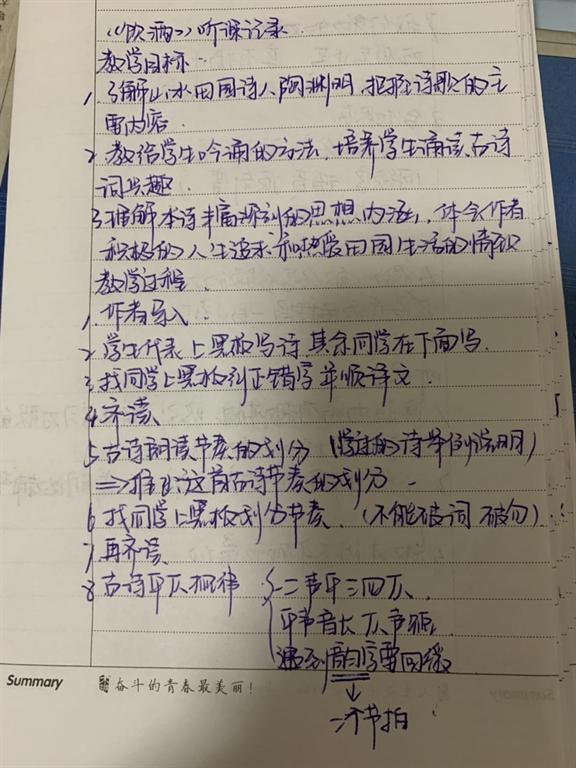 《饮酒》听课记录
教学目标：
1、了解山水田园诗人陶渊明，把握诗歌的主
要内容
2、教给学生吟诵的方法，培养学生诵读古诗
词兴趣.
3、理解本诗丰富深刻的思想内涵，体会作者
积极的人生追求和热爱田园生活的情趣
教学过程
1、作者导入.
2、学生代表上黑板写诗，其余同学在下面写.
3、找同学上黑板纠正错字并顺译文.
4、齐读.
5、古诗朗读节奏的划分（学过的诗举例说明）
⇒推出这首古诗节奏的划分.
6、找同学上黑板划分节奏.（不能破词 破句）
7、再齐读.
8、古诗平仄规律 一二声平三四仄.
平声音长仄声短.
遇到韵字要回缓
↓
一个节拍
Summary 奋斗的青春最美丽！